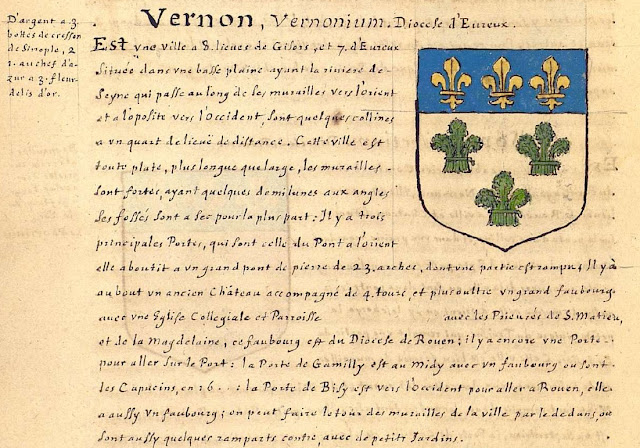 Vernon, Vernonium. Diocese d'Eureux.
D'argent a 3.
bottes de cresson
de Sinople, 2
1. au chef d'a-
zur a 3. fleur-
delis d'or.
Est vne ville a 8. lieues de Gisors, et 7. d'Eureux
Située dans vne basse plaine ayant la riuiere de
Seyne qui passe au long de ses murailles vers lorient
et a l'oposite vers l'Occident, sont quelques collines
a vn quart de lieuë de distance. Cette ville est
toute plate, plus longue que large, les murailles
sont fortes, ayant quelques demilunes aux angles
les fossés sont a sec pour la plus part: Il y a trois
principales Portes, qui sont celle du Pont a l'orient
elle aboutit a vn grand pont de pierre de 23. arches, dont vne partie est rompu; Il y a
au bout vn ancien Château accompagné de 4. tours, et plus oultre vn grand faubourg
avec vne Eglise Collegiale et Parroisse avec les Prieurés de S. Matieu,
et de la Magdelaine, ce faubourg est du Diocese de Rouen; il y a encore vne Porte
pour aller sur le Port: la Porte de Gamilly est au Midy avec vn faubourg ou sont
les Capucins, en 16..: la Porte de Bisy est vers l'Occident pour aller a Rouen, elle
a aussy vn faubourg; on peut faire le tour des murailles de la ville par le dedans, ou
sont aussy quelques ramparts contre, avec de petits Jardins.